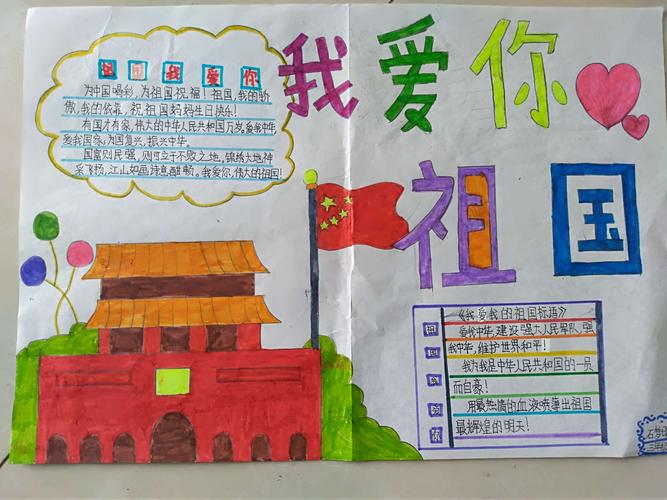 我爱你
祖国
祖国我爱你
为中国喝彩，为祖国祝福！祖国，我的骄
傲，我的依靠，祝祖国妈妈生日快乐！
有国才有家，伟大的中华人民共和国万岁，爱我中华，
爱我国家，为国复兴，振兴中华。
国富则民强，则可立于不败之地，锦绣大地神
采飞扬，江山如画诗意酣畅。我爱你，伟大的祖国！
《我爱我的祖国标语》
爱我中华，建设强大人民军队，强
我中华，维护世界和平！
我为我是中华人民共和国的一员
而自豪！
用最热情的血液喷薄出祖国
最辉煌的明天！